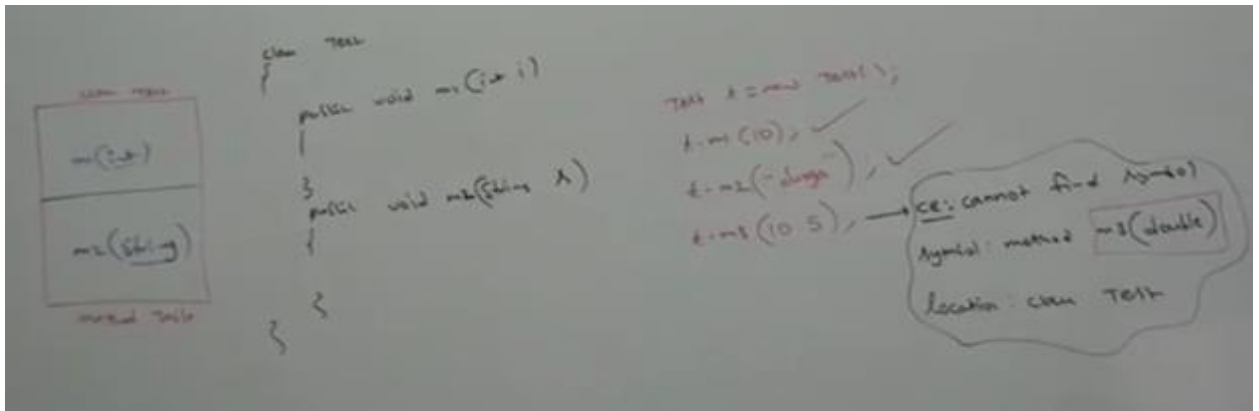 class Test
m1(int)
m2(String)
method table
class Test
{
public void m1(int i)
{
}
public void m2(String s)
{
}
}
Test t = new Test();
t.m1(10);
t.m2("durga");
t.m3(10.5);
CE: cannot find symbol
symbol: method m3(double)
location: class Test